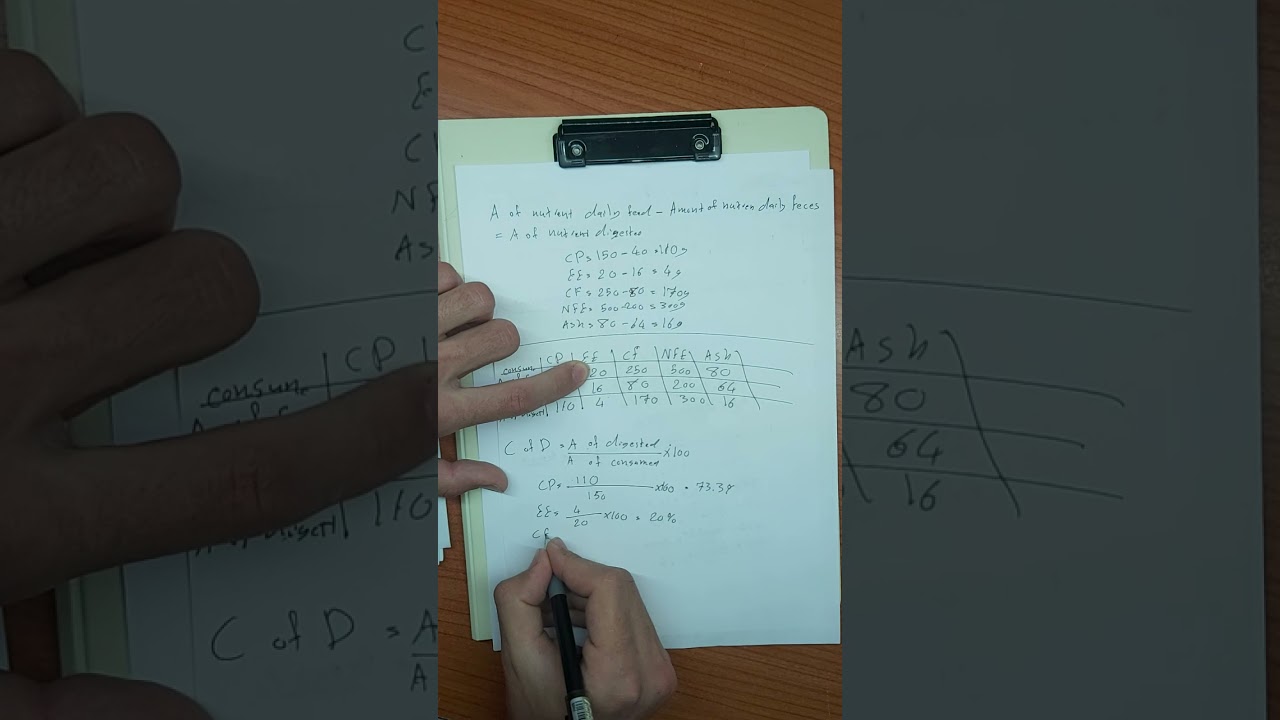 A of nutrient daily feed - Amount of nutrien daily feces
= A of nutrient digested
CP = 150 - 40 = 110g
EE = 20 - 16 = 4g
CF = 250 - 80 = 170g
NFE = 500 - 200 = 300g
Ash = 80 - 64 = 16g
CP EE CF NFE Ash
consum 20 250 500 80
16 80 200 64
110 4 170 300 16
C of D = A of digested
A of consumed
×100
CP = 110
150
×100 = 73.3%
EE = 4
20
×100 = 20%
CF